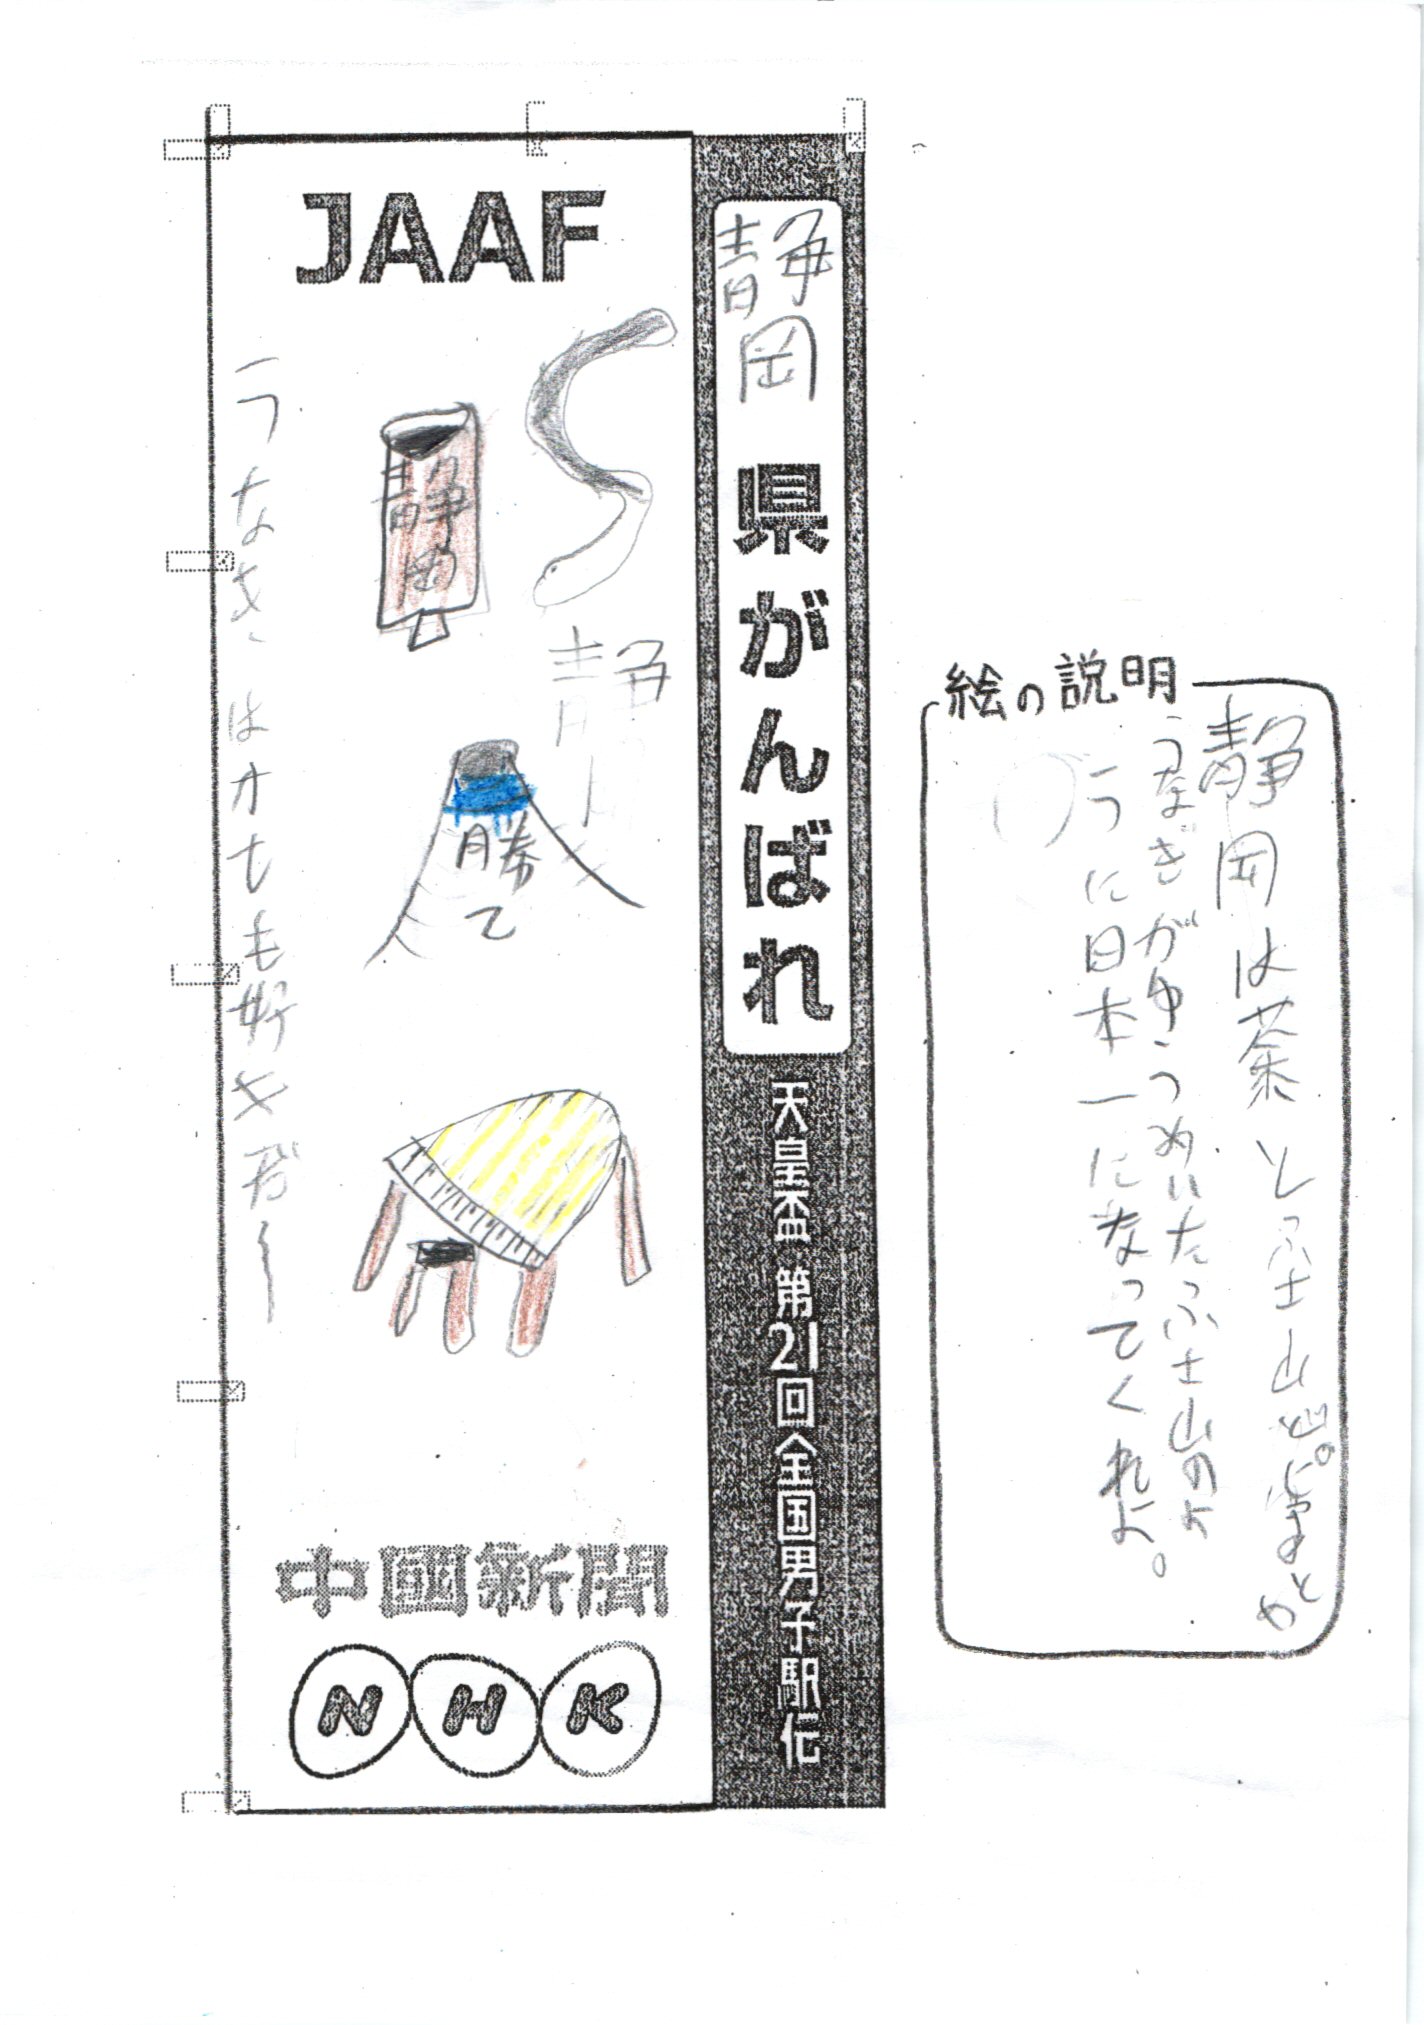 JAAF
静岡 県がんばれ
天皇盃 第21回全国男子駅伝
静岡
静
勝て
うなぎは
も好きだー
中國新聞
NHK
絵の説明
静岡は茶とふ士山と。
うなぎがゆうめいたっふ士山のよ
うに日本一になってくれよ。